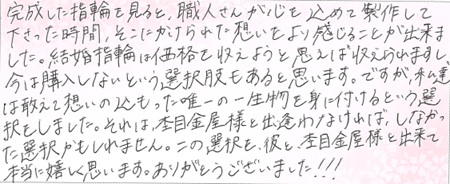 完成した指輪を見ると、職人さんが心を込めて製作して
下さった時間、そこにかけられた想いをより感じることが出来ま
した。結婚指輪は価格を収えようと思えば収えられますし、
今は購入しないという選択肢もあると思います。ですが、私達
は敢えて想いの込もった唯一の一生物を身に付けるという選
択をしました。それは、杢目金屋様と出逢わなければ、しなかっ
た選択かもしれません。この選択を、彼と、杢目金屋様と出来て
本当に嬉しく思います。ありがとうございました!!!